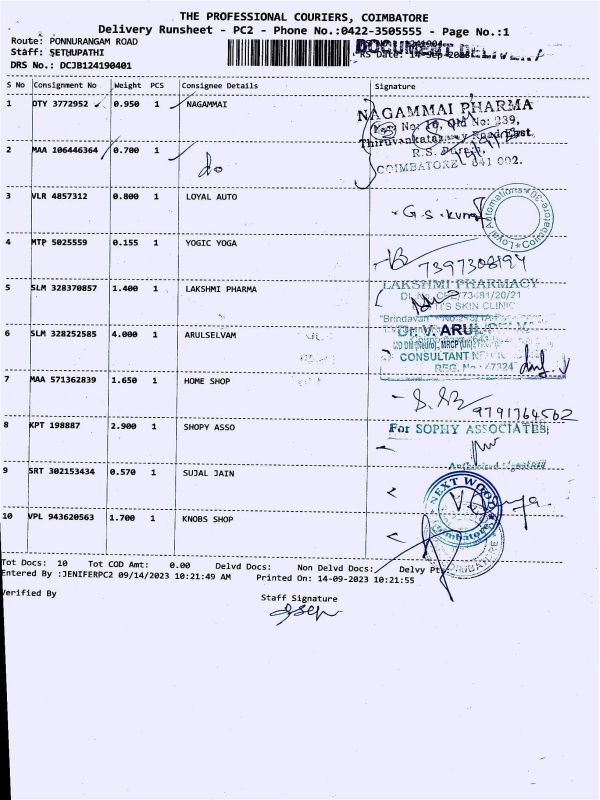 THE PROFESSIONAL COURIERS, COIMBATORE
Delivery Runsheet - PC2 - Phone No.:0422-3505555 - Page No.:1
Route: PONNURANGAM ROAD
Staff: SETHUPATHI
DRS No.: DCJB124190401
DOCUMENT
RS Date: 14-Sep-2023
S No Consignment No Weight PCS Consignee Details Signature
1 DTY 3772952 0.950 1 NAGAMMAI
NAGAMMAI PHARMA
239,
R.S.
COIMBATORE 641 002.
2 MAA 106446364 0.700 1 do
3 VLR 4857312 0.800 1 LOYAL AUTO
G.S.
Loyal Automations Coimbatore-30
4 MTP 5025559 0.155 1 YOGIC YOGA
7397308194
5 SLM 328370857 1.400 1 LAKSHMI PHARMA
LAKSHMI PHARMACY
SKIN CLINIC
"Brindavan"
6 SLM 328252585 4.000 1 ARULSELVAM
Dr. V.
CONSULTANT
7 MAA 571362839 1.650 1 HOME SHOP
9791764502
8 KPT 198887 2.900 1 SHOPY ASSO
For SOPHY ASSOCIATES
9 SRT 302153434 0.570 1 SUJAL JAIN
NEXT WOOD
Coimbatore
10 VPL 943620563 1.700 1 KNOBS SHOP
Tot Docs: 10 Tot COD Amt: 0.00 Delvd Docs: Non Delvd Docs: Delvy
Entered By :JENIFERPC2 09/14/2023 10:21:49 AM Printed On: 14-09-2023 10:21:55
Verified By
Staff Signature